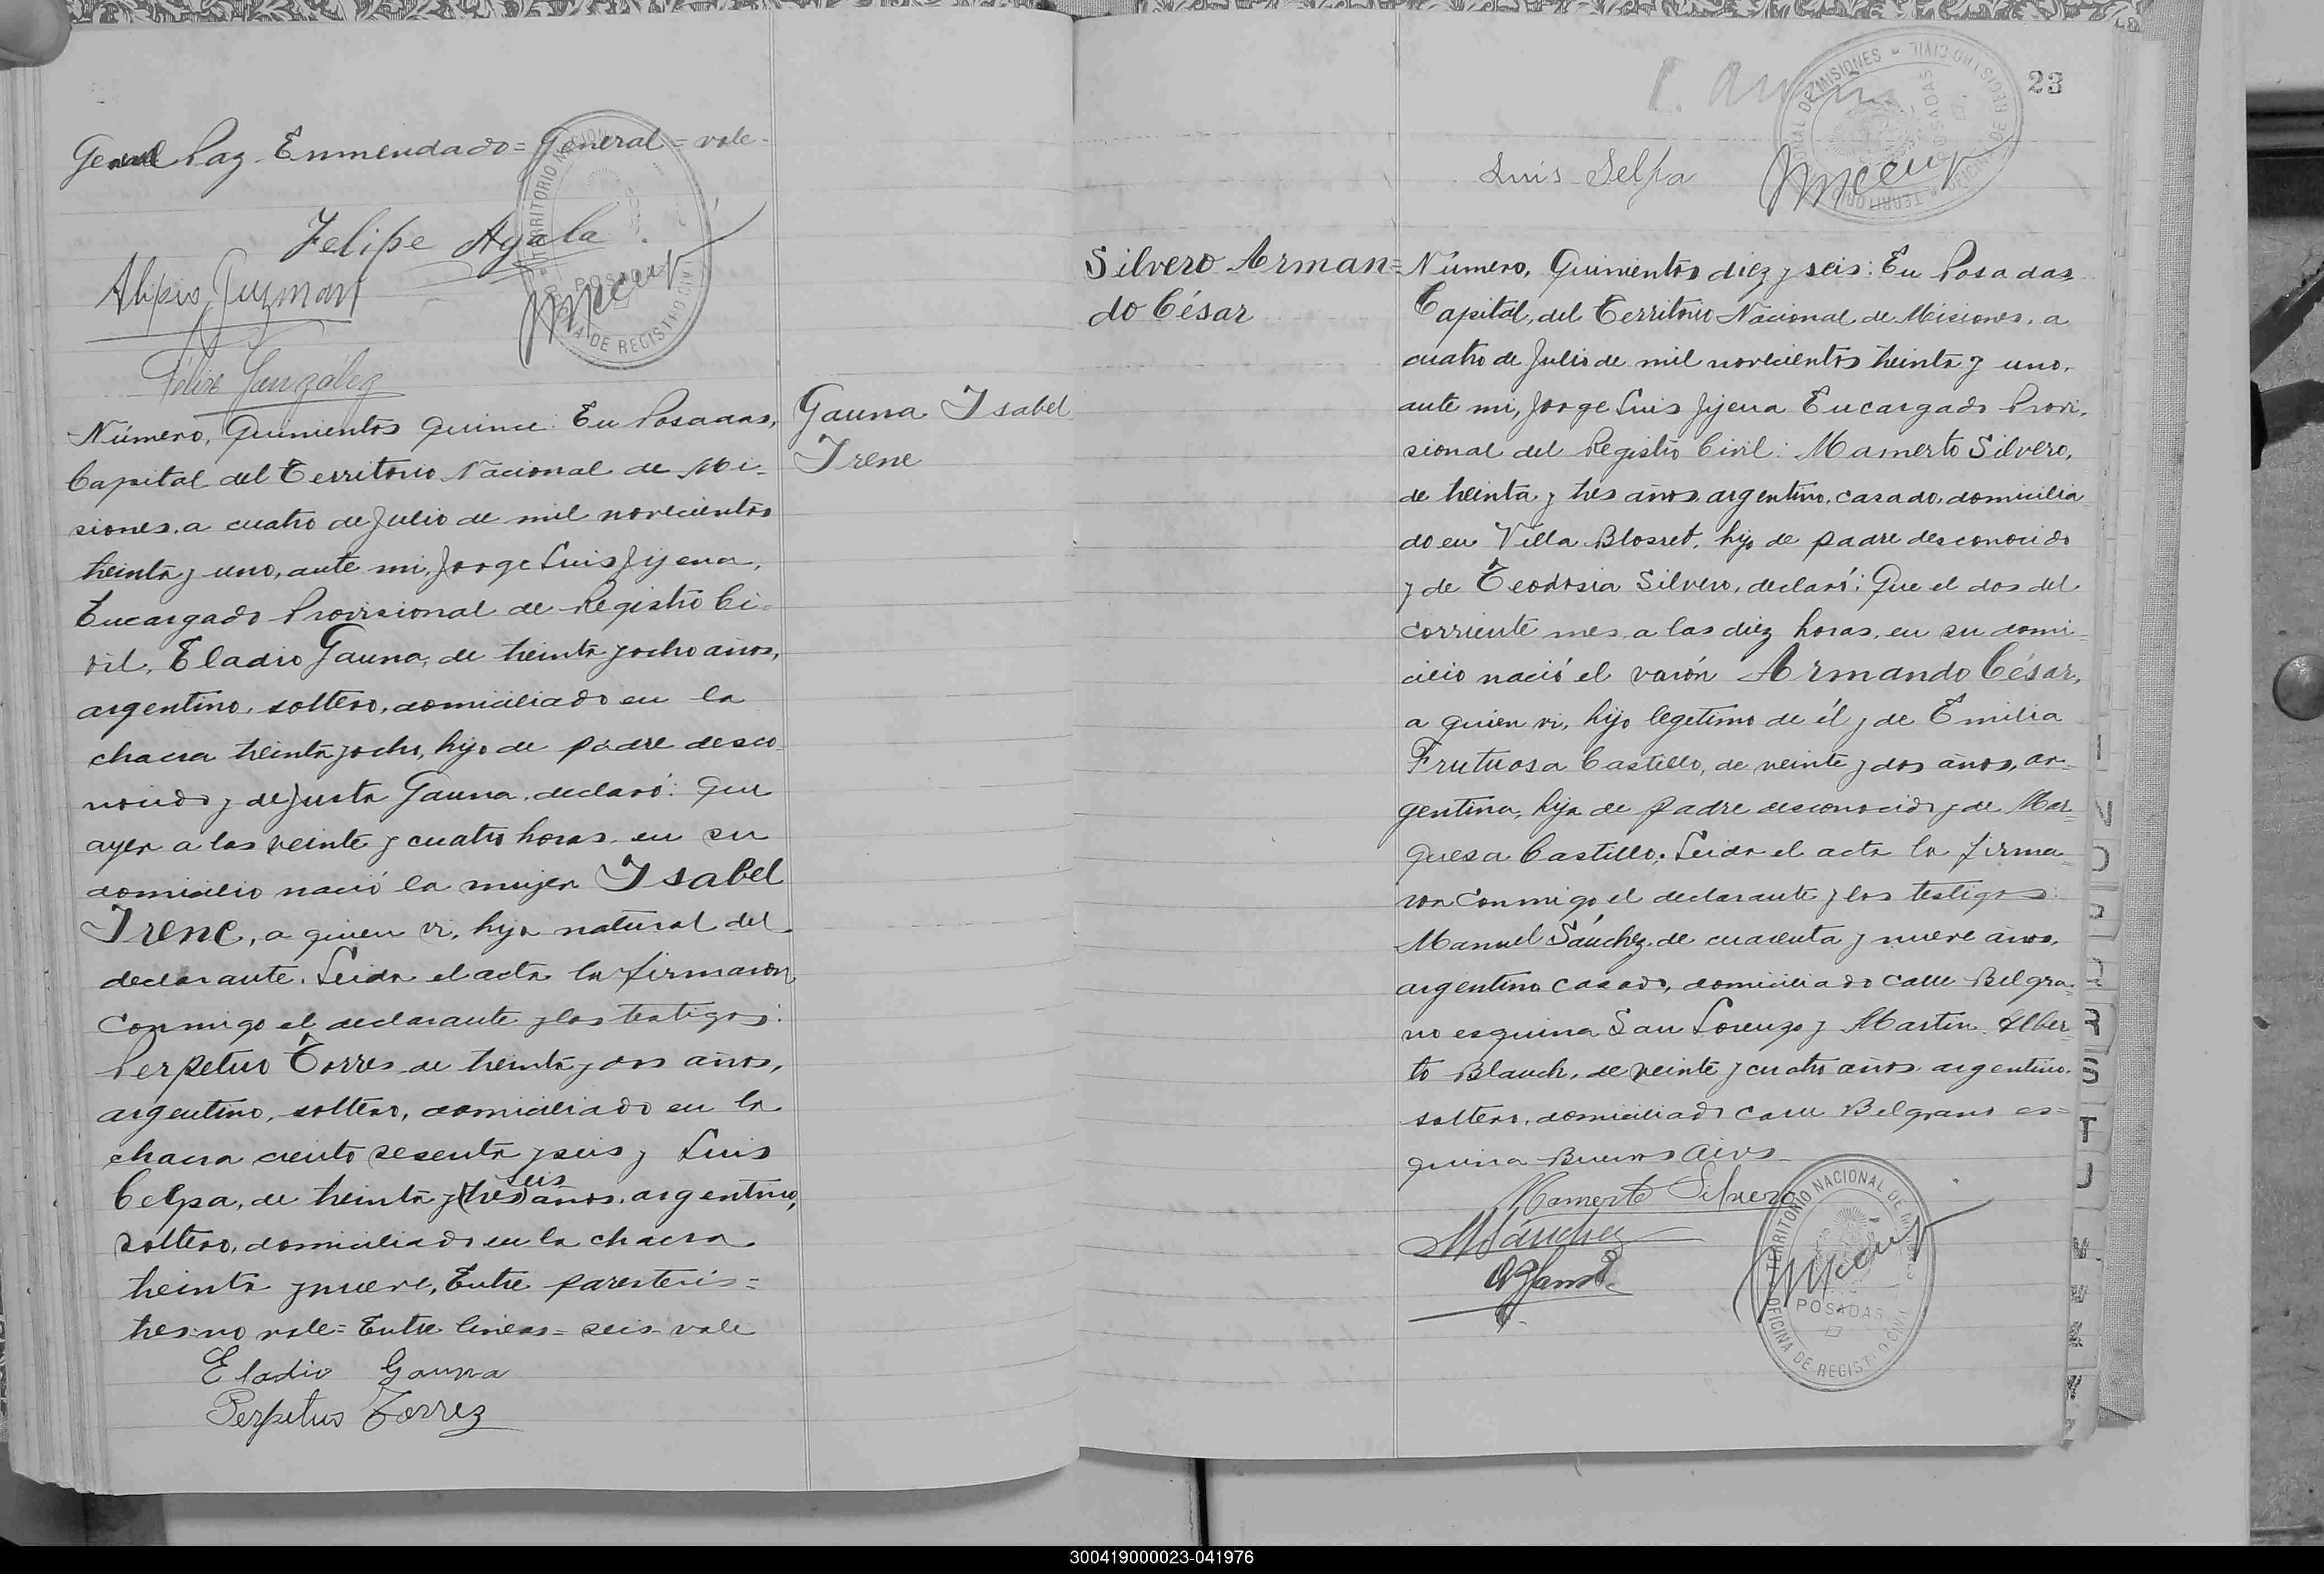 General Paz. Enmendado = General = vale -
Felipe Ayala
Alipio Guzman
Félix González
Gauna Isabel
Irene
Número, Quinientos quince: En Posadas,
Capital del Territorio Nacional de Mi-
siones, a cuatro de Julio de mil novecientos
treinta y uno, ante mi, Jorge Luis Jijena,
Encargado Provisional de Registro Ci=
vil, Eladio Gauna, de treinta y ocho años,
argentino, soltero, domiciliado en la
chacra treinta y ocho, hijo de padre desco-
nocido y de Justa Gauna, declaró: Que
ayer a las veinte y cuatro horas, en su
domicilio nació la mujer Isabel
Irene, a quien vi, hija natural del
declarante. Leida el acta la firmaron
conmigo el declarante y los testigos:
Perpetuo Torres de treinta y dos años,
argentino, soltero, domiciliado en la
chacra ciento sesenta y seis y Luis
seis
Celpa, de treinta y (tres) años, argentino,
soltero, domiciliado en la chacra
treinta y nueve, Entre parentesis =
tres = no vale = Entre lineas = seis - vale
Eladio Gauna
Perpetuo Torrez
TERRITORIO NACIONAL
POSADAS
OFICINA DE REGISTRO CIVIL
23
TERRITORIO NACIONAL DE MISIONES - OFICINA DE REGISTRO CIVIL -
POSADAS
Luis Selpa
Silvero Arman=
do César
Número, Quinientos diez y seis: En Posadas
Capital, del Territorio Nacional de Misiones, a
cuatro de Julio de mil novecientos treinta y uno,
ante mi, Jorge Luis Jijena Encargado Provi-
sional del Registro Civil: Mamerto Silvero,
de treinta y tres años, argentino, casado, domicilia-
do en Villa Blosset, hijo de padre desconocido
y de Teodosia Silvero, declaró: Que el dos del
corriente mes, a las diez horas, en su domi=
cilio nació el varón Armando César,
a quien vi, hijo legitimo de él y de Emilia
Frutuosa Castillo, de veinte y dos años, ar=
gentina, hija de padre desconocido y de Mar=
quesa Castillo. Leida el acta la firma-
ron conmigo el declarante y los testigos:
Manuel Sánchez, de cuarenta y nueve años,
argentino casado, domiciliado calle Belgra=
no esquina San Lorenzo y Martin Alber-
to Blauch, de veinte y cuatro años argentino,
soltero, domiciliado calle Belgrano es=
quina Buenos Aires
Mamerto Silvero
MSánchez
TERRITORIO NACIONAL DE MISIONES
POSADAS
OFICINA DE REGISTRO CIVIL
R
S
T
300419000023-041976